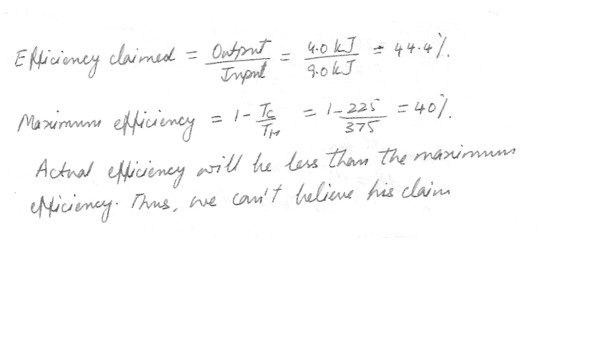 Efficiency claimed = Output/Input = 4.0 kJ/9.0 kJ = 44.4%.
Maximum efficiency = 1 - Tc/TH = 1 - 225/375 = 40%.
Actual efficiency will be less than the maximum
efficiency. Thus, we can't believe his claim